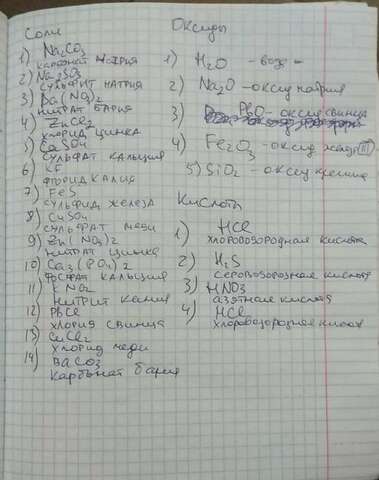 Соли
1) Na2CO3
карбонат натрия
2) Na2SO3
сульфит натрия
3) Ba(NO3)2
нитрат бария
4) ZnCl2
хлорид цинка
5) CaSO4
сульфат кальция
6) KF
фторид калия
7) FeS
сульфид железа
8) CuSO4
сульфат меди
9) Zn(NO3)2
нитрат цинка
10) Ca3(PO4)2
фосфат кальция
11) KNO2
нитрит калия
12) PbCl
хлорид свинца
13) CuCl2
хлорид меди
14) BaCO3
карбонат бария
Оксиды
1) H2O - вода
2) Na2O - оксид натрия
3) PbO - оксид свинца
4) Fe2O3 - оксид железа (III)
5) SiO2 - оксид кремния
Кислоты
1) HCl
хлороводородная кислота
2) H2S
сероводородная кислота
3) HNO3
азотная кислота
4) HCl
хлороводородная кислота